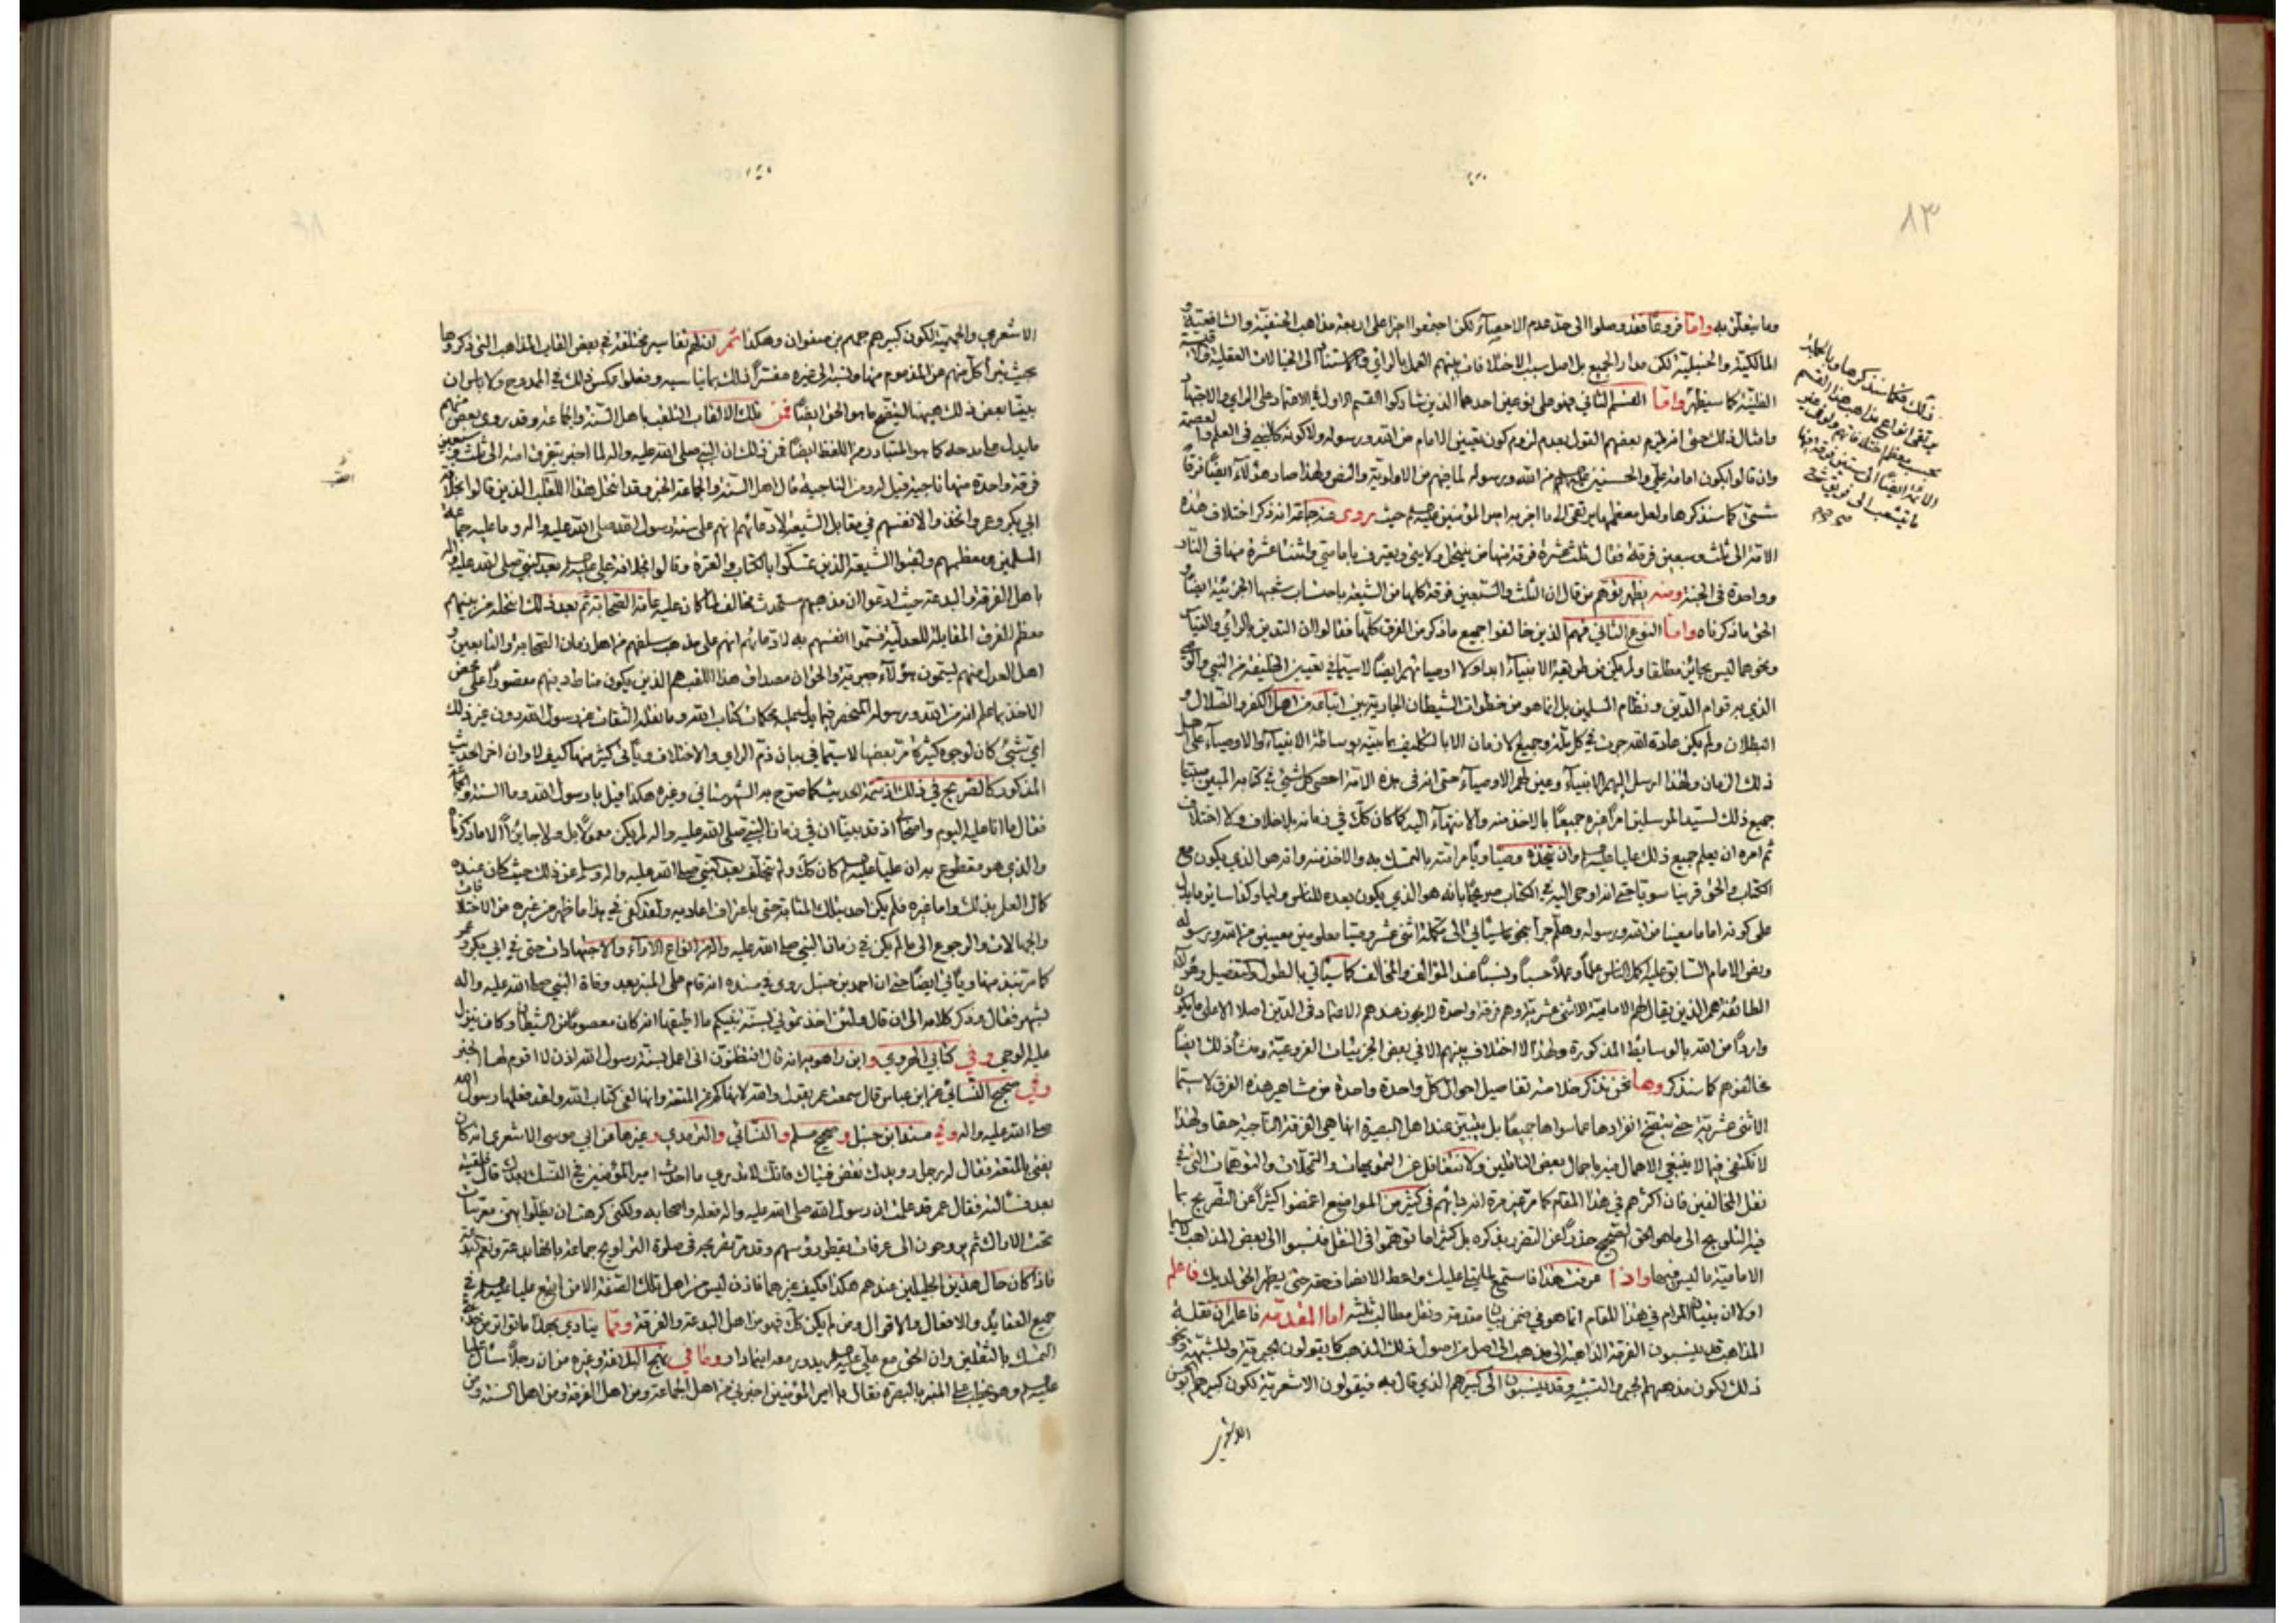 ٨٣
وما يتعلق به واما فروعًا فقد وصلوا الى حد عدم الاحصاء لكن اجتمعوا اجزا على اربعة مذاهب الحنفية والشافعية و
المالكية والحنبلية لكن مدار الجميع بل اصل سبب الاختلافات بينهم العمل بالرأي والاستناد الى الخيالات العقلية
الظنية كما سيظهر واما القسم الثاني فهو على نوعين احدهما الذين شاركوا القسم الاول في الاعتماد على الراي والاجتهاد
وامثال ذلك حتى انه لزم بعضهم القول بعدم لزوم كون تعيين الامام من الله ورسوله ولا كونه كالنبي في العلم والعصمة
وان قالوا بكون امامة علي والحسنين عليهم من الله ورسوله لما فيهم من الاولوية والنص ولهذا صار هؤلاء ايضًا فرقًا
شتى كما سنذكرها ولعل معظمها يرتقى الى ما اخبر به امير المؤمنين عليه حيث روى عنه جماعة انه ذكر اختلاف هذه
الامة الى ثلث وسبعين فرقة فقال ثلث عشرة فرقة منها من ينتحل ولايتي ويعترف بامامتي واثنتا عشرة منها في النار
وواحدة في الجنة ومنه يظهر توهم من قال ان الثلث والسبعين فرقة كلها من الشيعة باحتساب شعبها الجزئية ايضًا
الحق ما ذكرناه واما النوع الثاني فهم الذين خالفوا جميع ما ذكر من الفرق كلها فقالوا ان التدين بالرأي والقياس
ونحوهما ليس بجائز مطلقا ولم يكن من طريقة الانبياء ابدا ولا اوصيائهم ايضًا لاسيما في تعيين الخليفة من النبي والوصي
الذي به قوام الدين ونظام المسلمين بل انما هو من خطوات الشيطان الجارية بين اتباعه من اهل الكفر والضلال و
البطلان ولم يكن عادة الله جرت في كل ملة وجميع الازمان الا بالتكليف بما بينه بوساطة الانبياء والاوصياء على اهل
ذلك الزمان ولهذا ارسل اليهم الانبياء وعين لهم الاوصياء حتى انه في هذه الامة احصى كل شئ في كتابه المبين مبينا
جميع ذلك لسيد المرسلين امرًا غيره جميعًا بالاخذ منه والانتهاء اليه كما كان كل في زمانه بلا خلاف ولا اختلاف
ثم امره ان يعلم جميع ذلك عليا عليه وان يتخذه وصيا ويامر امته بالتمسك به والاخذ منه وانه هو الذي يكون مع
الكتاب والحق قرينا سويا حتى انه اوحى اليه في الكتاب صريحًا بانه هو الذي يكون بعده للناس وليا وكفا سائر ما يدل
على كونه اماما معينا من الله ورسوله وهلم جرا بنحو ما سيأتي الى تكملة اثني عشر وصيا معلومين معينين من الله ورسوله
وبنص الامام السابق عليه اكل الناس علمًا وعملاً حسبًا ونسبًا عند المؤالف والمخالف كما سيأتي بالطول والتفصيل وهؤلاء
الطائفة هم الذين يقال لهم الامامية الاثنى عشرية وهم فرقة واحدة لا يجوز عندهم الاعتماد في الدين اصلا الا على ما يكون
واردًا من الله بالوسائط المذكورة ولهذا لا اختلاف بينهم الا في بعض الجزئيات الفروعية ومنشأ ذلك ايضًا
مخالفوهم كما سنذكر وها نحن نذكر خلاصة تفاصيل احوال كل واحدة واحدة من مشاهير هذه الفرق لاسيما
الاثنى عشرية حتى يتضح انفرادها عما سواها جميعًا بل يتبين عند اهل البصيرة انها هي الفرقة الناجية حقا ولهذا
لا نكتفي فيها لا ينبغي الاهمال فيه باجمال بعض الناقلين ولا نتغافل عن التمويهات والتمحلات والتوهمات التي في
نقل المخالفين فان اكثرهم في هذا المقام كما مر غير مرة انه دأبهم في كثير من المواضع اغمضوا كثيرًا عن التصريح بما
فيه التلويح الى ما هو الحق الصحيح حذرًا عن التضرر بذكره بل كثيرًا ما توهموا في النقل فنسبوا الى بعض المذاهب لاسيما
الامامية ما ليس فيها واذا عرفت هذا فاستمع لما يتلى عليك واعط الانصاف حقه حتى يظهر الحق لديك فاعلم
اولا ان بيان المرام في هذا المقام انما هو في ضمن بيان مقدمة ونقل مطالب ثلثة اما المقدمة فاعلم ان نقلة
المذاهب قد ينسبون الفرقة الذاهبة الى مذهب الى اصل من اصول ذلك المذهب كما يقولون المجبرة والمشبهة ونحو
ذلك لكون مذهبهم الجبر والتشبيه وقد ينسبون الى كبيرهم الذي قال به فيقولون الاشعرية لكون كبيرهم ابو الحسن
الاشعري
الاشعري والجهمية لكون كبيرهم جهم بن صفوان وهكذا ثم ان لهم تفاسير مختلفة في بعض القاب المذاهب التي ذكروها
بحيث تبرأ كل منهم عن المذموم منها ونسبه الى غيره مفسرًا ذلك بما يناسبه وفعلوا عكس ذلك في الممدوح ولا باس ان
يبين بعض ذلك هيهنا ليتضح ما هو الحق ايضًا فمن تلك الالقاب التلقب باهل السنة والجماعة وقد روى بعض منهم
ما يدل على مدحه كما هو المتبادر من اللفظ ايضًا فمن ذلك ان النبي صلى الله عليه واله لما اخبر بتفرق امته الى ثلث وسبعين
فرقة واحدة منها ناجية قيل له ومن الناجية قال اهل السنة والجماعة الخبر وقد انتحل هذا اللقب الذين قالوا بخلافة
ابي بكر وعمر واتخذوا لانفسهم في مقابل الشيعة لادعائهم انهم على سنة رسول الله صلى الله عليه واله وما عليه جماعة
المسلمين ومعظمهم ولقبوا الشيعة الذين تمسكوا بالكتاب والعترة وقالوا بخلافة علي عليه بعد النبي صلى الله عليه واله
باهل الفرقة والبدعة حيث ادعوا ان مذهبهم مستحدث مخالف لما كان عليه عامة الصحابة ثم بعد ذلك انتحله من بينهم
معظم الفرق المقابلة للعدلية فسموا انفسهم به لادعائهم انهم على مذهب سلفهم من اهل زمان الصحابة والتابعين و
اهل العدل منهم يسمون هؤلاء جبرية والحق ان مصداق هذا اللقب هم الذين يكون مناط دينهم مقصورًا على محض
الاخذ بما علم انه من الله ورسوله المنحصر فيما يدل عليه محكمات كتاب الله وما نقله الثقات عن رسول الله دون غير ذلك
اي شئ كان لوجوه كثيرة مر بعضها لاسيما في بيان ذم الراي والاختلاف ويأتي كثير منها كيف لا وان اخر الحديث
المذكور كالصريح في ذلك اذ تتمة الحديث كما صرح به الشهرستاني وغيره هكذا قيل يا رسول الله وما السنة والجماعة
فقال ما انا عليه اليوم واصحابي اذ قد بينا ان في زمان النبي صلى الله عليه واله لم يكن معمولاً بل ولا جائزًا الا ما ذكرنا
والذي هو مقطوع به ان عليا عليه كان كل ولم يتخلف بعد النبي صلى الله عليه واله وسلم عن ذلك حيث كان عنده
كمال العلم بذلك واما غيره فلم يكن احد بتلك المثابة حتى باعتراف اعاديه ولقد كفى في هذا ما ظهر من غيره من الاختلافات
والجهالات والرجوع الى ما لم يكن في زمان النبي صلى الله عليه واله من انواع الاراء والاجتهادات حتى في ابي بكر وعمر
كما مر نبذ منها ويأتي ايضًا حتى ان احمد بن حنبل روى في مسنده انه قام على المنبر بعد وفاة النبي صلى الله عليه واله
بشهر فقال وذكر كلامه الى ان قال ولئن اخذتموني بسنة نبيكم ما اطيقها انه كان معصومًا من الشيطان وكان ينزل
عليه الوحي وفي كتابي الهروي وابن راهويه انه قال افتظنون اني اعمل بسنة رسول الله اذن لا اقوم لها الخبر
وفي صحيح النسائي عن ابن عباس قال سمعت عمر يقول والله لانهاكم عن المتعة وانها لفي كتاب الله ولقد فعلها رسول الله
صلى الله عليه واله وفي مسند ابن حنبل وصحيح مسلم والنسائي والترمذي وغيرها عن ابي موسى الاشعري انه كان
يفتي بالمتعة فقال له رجل رويدك بعض فتياك فانك لا تدري ما احدث امير المؤمنين في النسك بعدك قال فلقيته
بعد فسألته فقال عمر قد علمت ان رسول الله صلى الله عليه واله فعله واصحابه ولكني كرهت ان يظلوا بهن معرسات
تحت الاراك ثم يروحون الى عرفات يقطر رؤسهم وقد مر تصريحه في صلوة التراويح جماعة بانها بدعة ونعم البدعة
فاذا كان حال هذين الجليلين عندهم هكذا فكيف غيرهما فاذن ليس من اهل تلك الصفة الا من اتبع عليا عليه في
جميع العقائد والافعال والاقوال ومن لم يكن كل فهو من اهل البدعة والفرقة ومما ينادي بهذا ما تواتر من
التمسك بالثقلين وان الحق مع علي عليه يدور معه اينما دار وما في نهج البلاغة وغيره من ان رجلاً سأل عليا
عليه وهو يخطب على المنبر بالبصرة فقال يا امير المؤمنين اخبرني من اهل الجماعة ومن اهل الفرقة ومن اهل السنة ومن